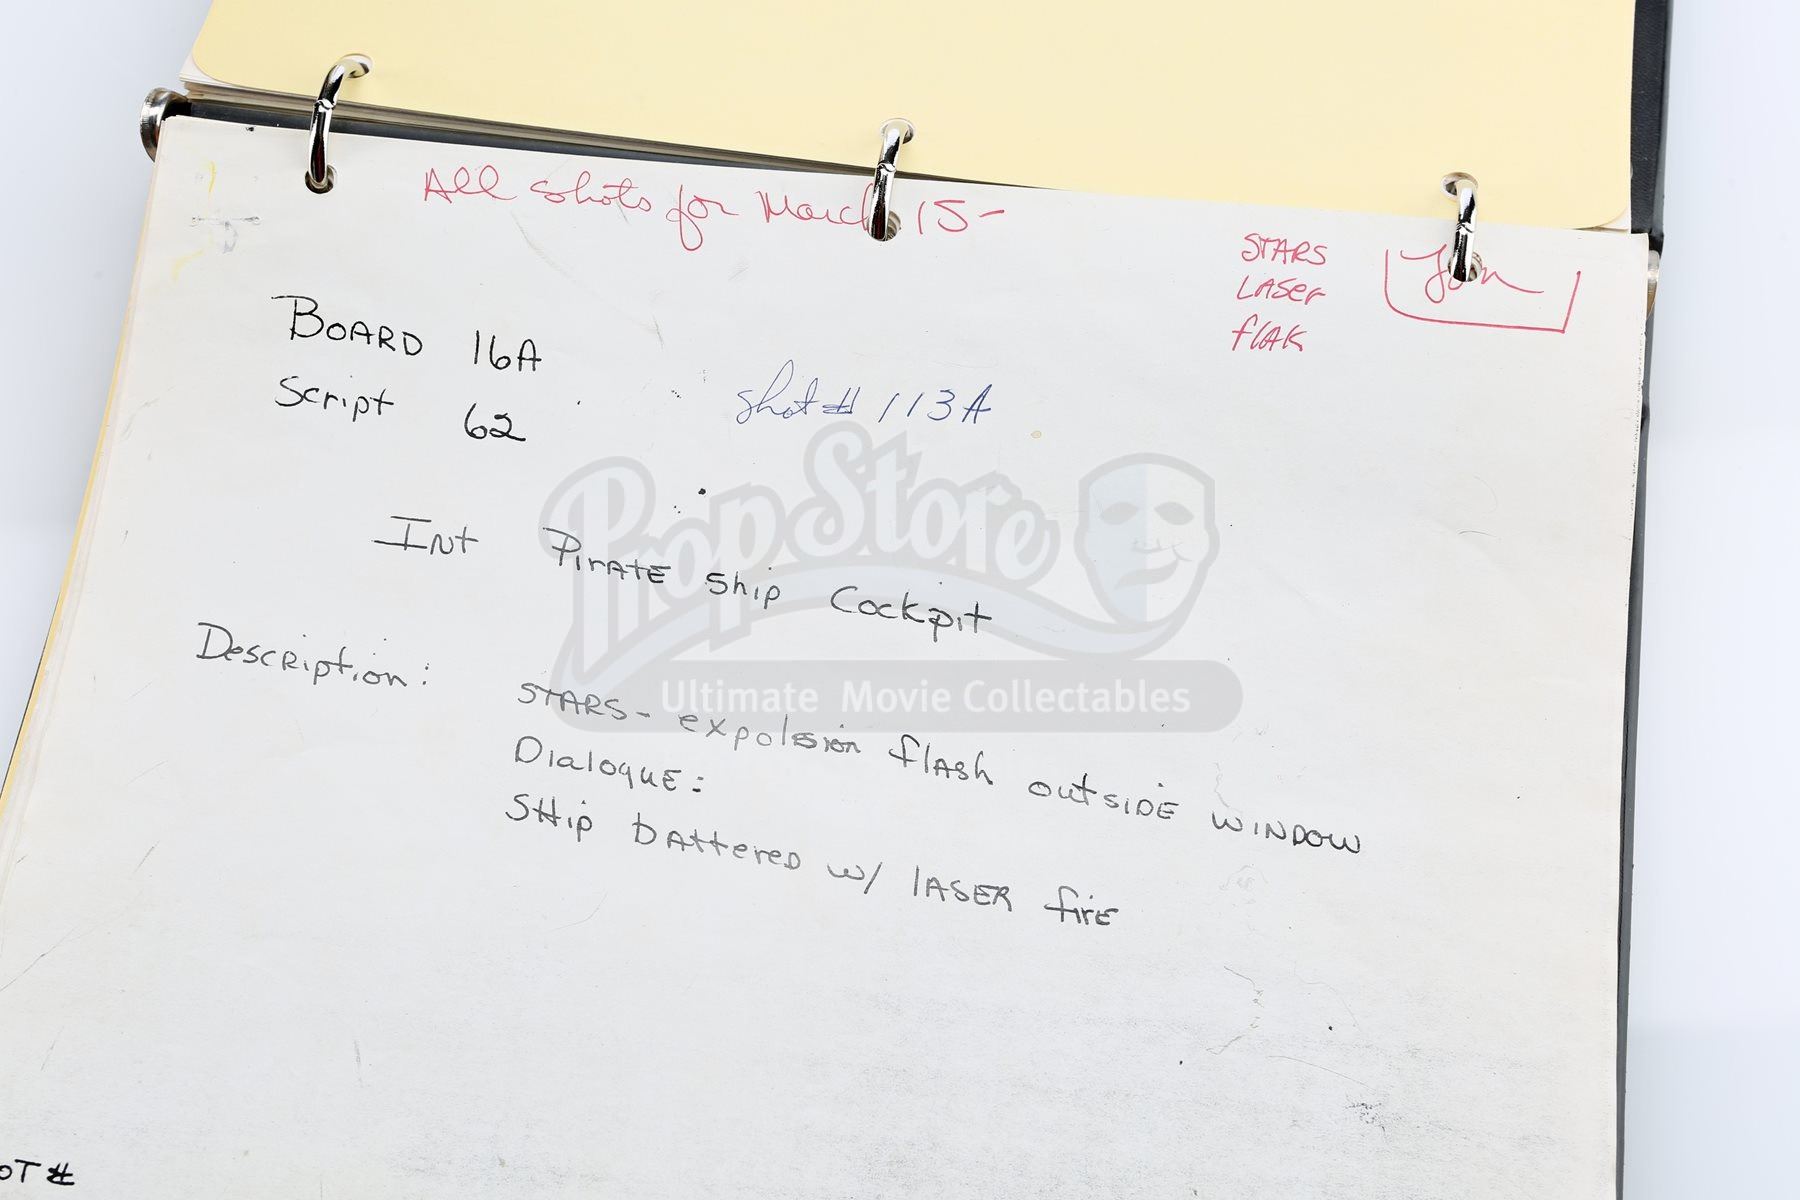 All shots for March 15-
STARS
LASER
flAK
BOARD 16A
Script 62
Shot # 113A
Int Pirate Ship Cockpit
Description:
STARS- expolssion flash outside window
Dialogue:
Ship battered w/ laser fire
PropStore
Ultimate Movie Collectables
OT #